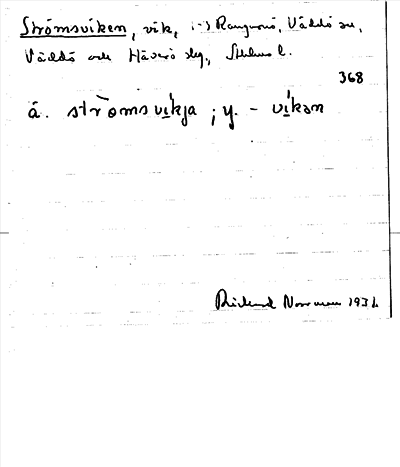 Strömsviken, vik, i) Rangarnö, Väddö sn,
Väddö och Häverö slg, Sthlms l.
368
ä. strömsvikja ; y. - vikən
Rickard Norrman 1931